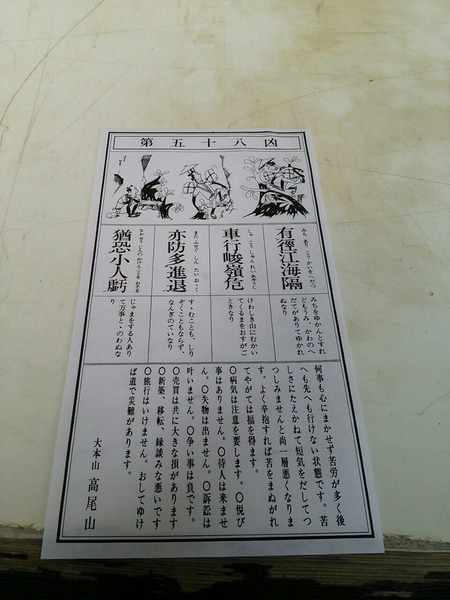 第五十八凶
有徑江海隔
みち あり こうかいをへだつ
みちをゆかんとすれ
どもうみ、かわのへ
だてがありてゆかれ
ぬなり
車行峻嶺危
しゃ こう しゅんれいあやうし
けわしき山にむかい
てくるまをおすがご
ときなり
亦防多進退
また ふせぐ しん たい おゝく
すゝむことも、しり
ぞくこともならず、
なんぎのていなり
猶恐小人虧
じゃまをする人あり
て万事とゝのわぬな
り
何事も心にまかせず苦労が多く後
へも先へも行けない状態です。苦
しさにたえかねて短気をだしてつ
つしみませんと尚一層悪くなりま
す。よく辛抱すれば苦をまぬがれ
てやがては福を得ます。
〇病気は注意を要します。〇悦び
事はありません。〇待人は来ませ
ん。〇失物は出ません。〇訴訟は
叶いません。〇争い事は負です。
〇売買は共に大きな損があります
〇新築、移転、縁談みな悪いです
〇旅行はいけません。おしてゆけ
ば道で災難があります。
大本山 高尾山